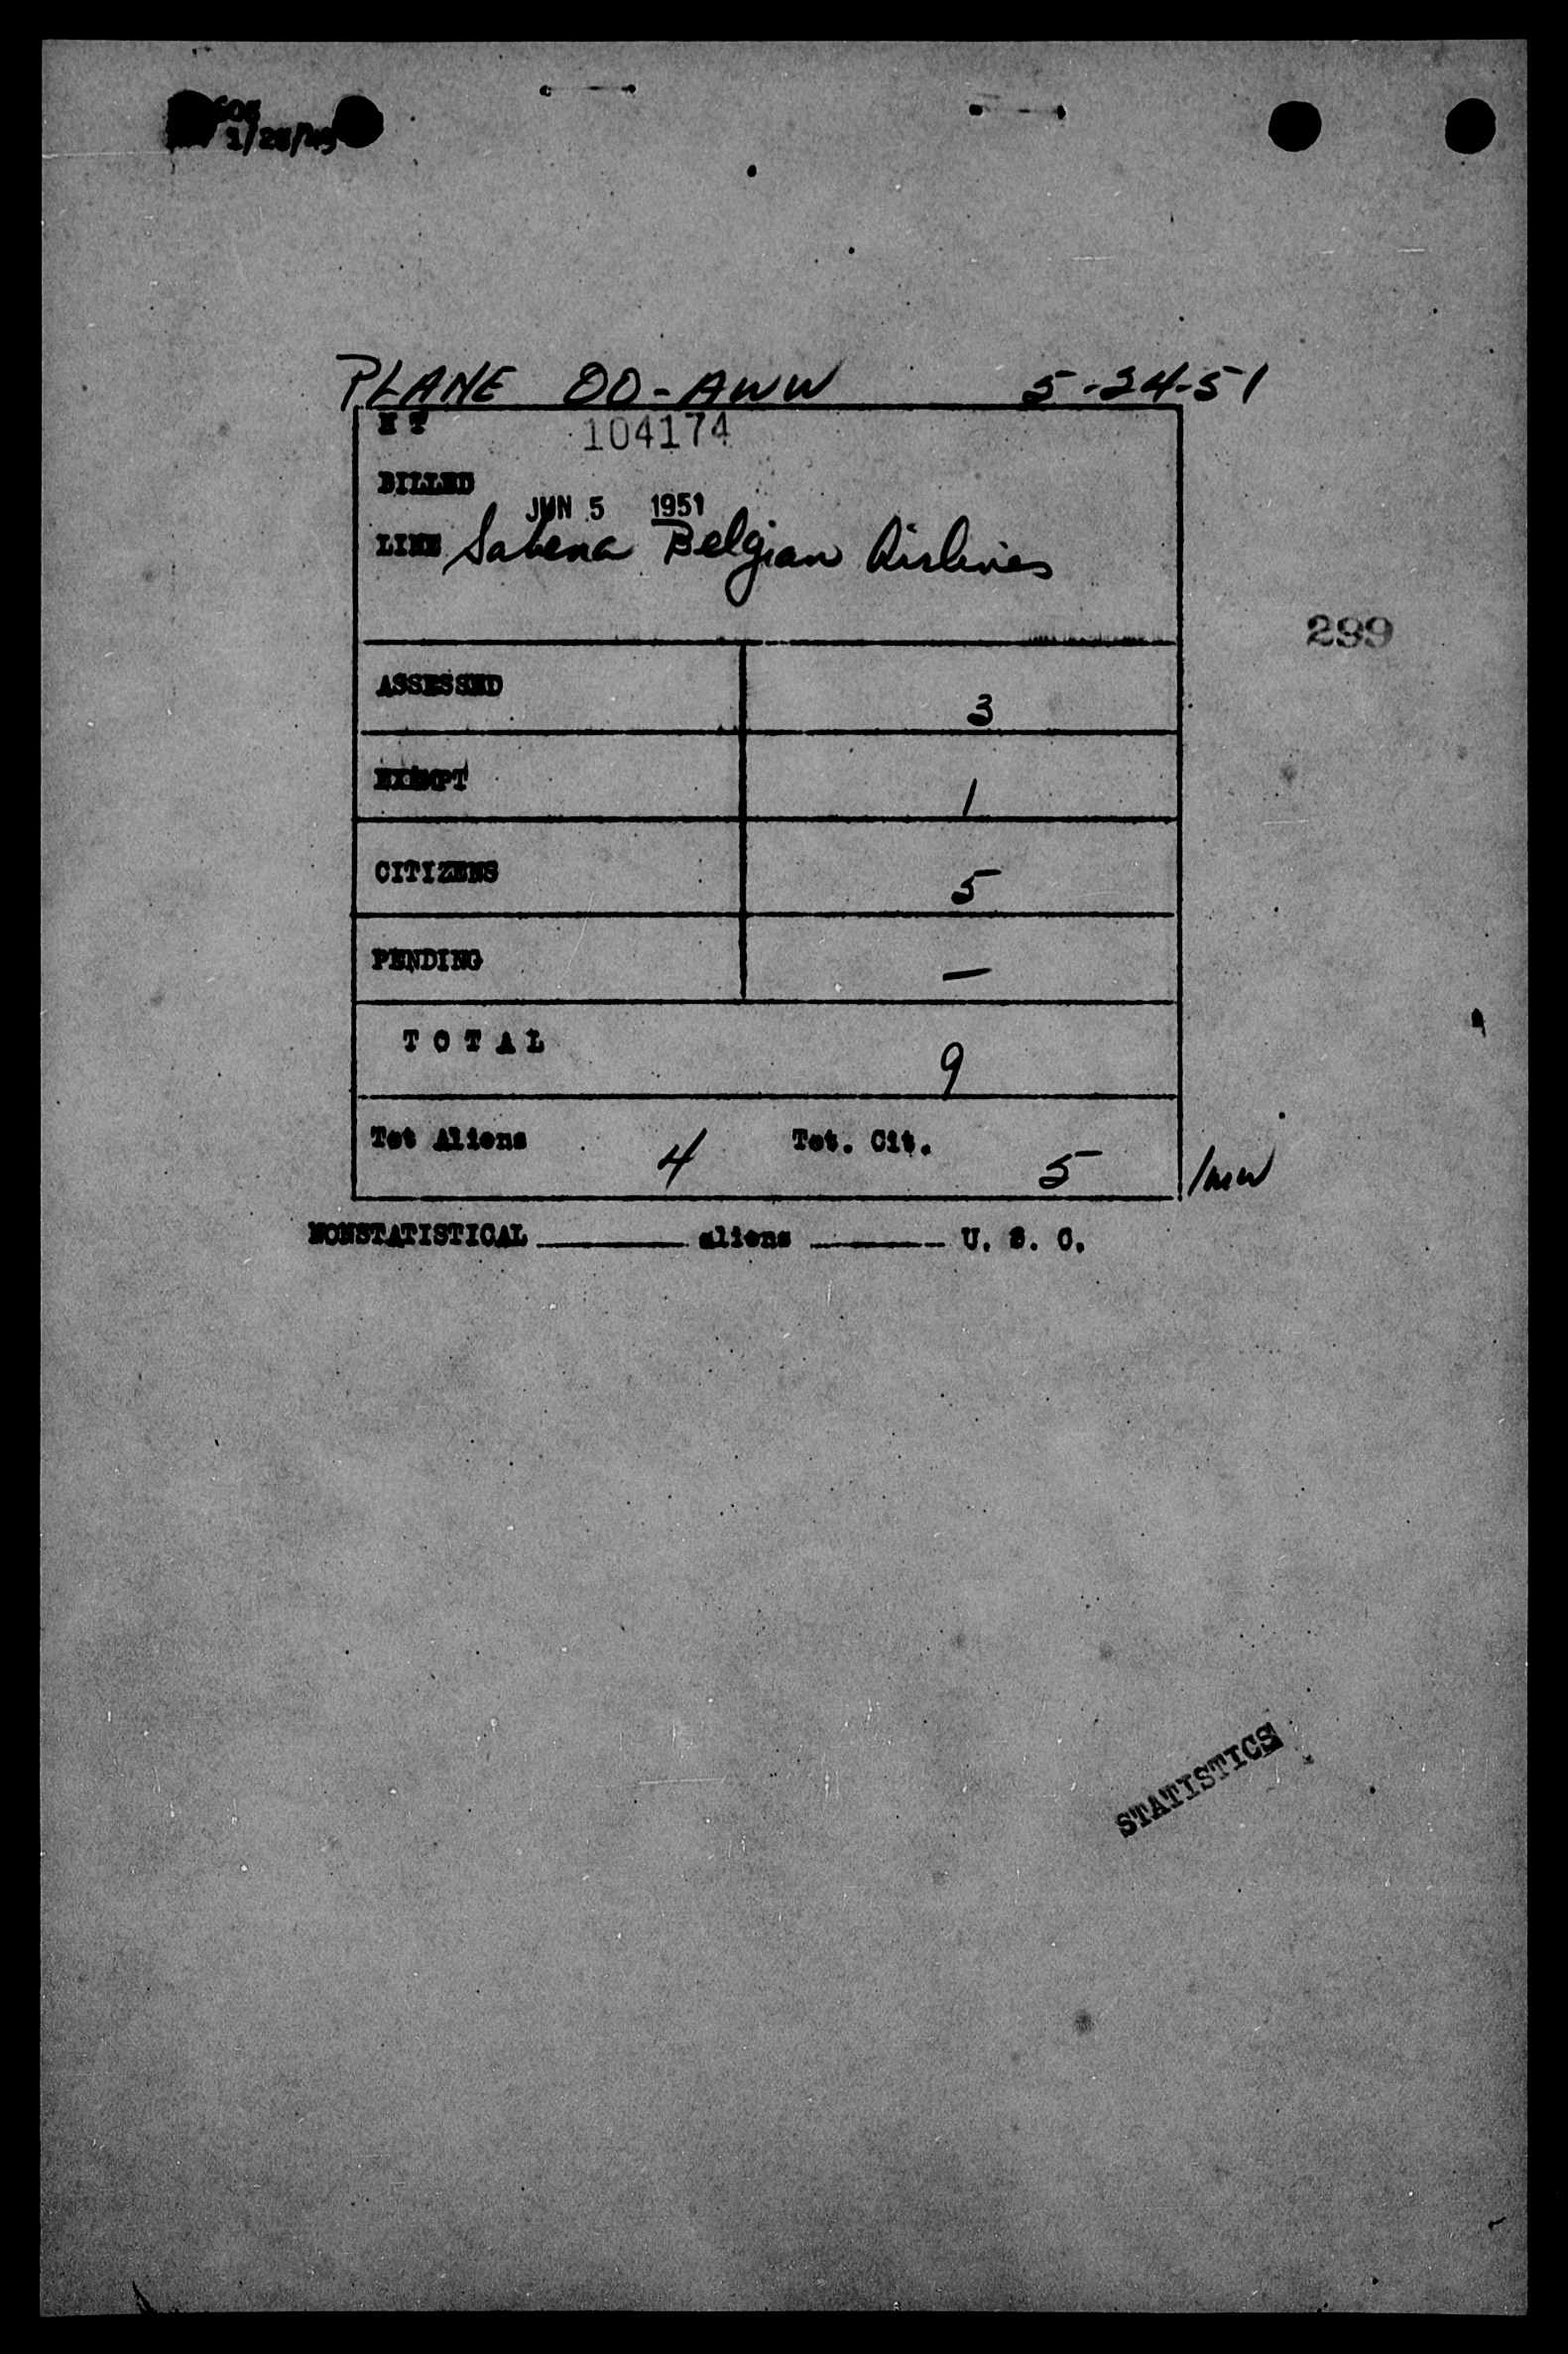 1/25/49
PLANE OO-AWW 5-24-51
H T 104174
BILLED
JUN 5 1951
LINE Sabena Belgian Airlines
299
ASSESSED 3
EXEMPT 1
CITIZENS 5
PENDING —
TOTAL 9
Tot Aliens 4 Tot. Cit. 5 /mw
NONSTATISTICAL ______ aliens ______ U. S. C.
STATISTICS